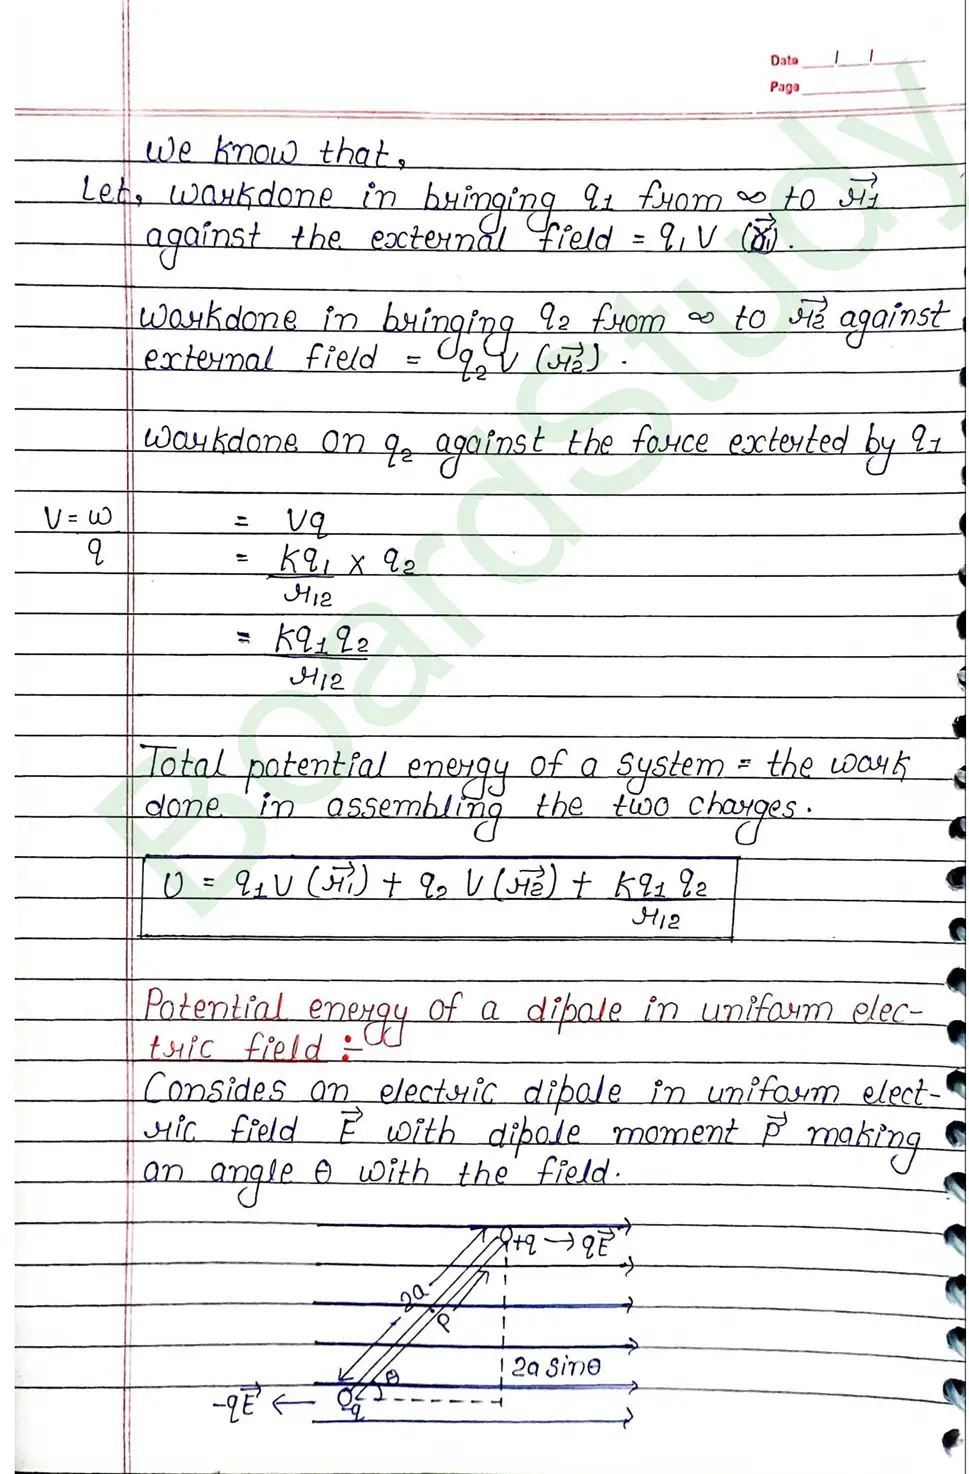 Date / /
Page
We know that,
Let, workdone in bringing q1 from ∞ to r⃗1
against the external field = q1 V (r⃗1).
workdone in bringing q2 from ∞ to r⃗2 against
external field = q2 V (r⃗2).
workdone on q2 against the force exterted by q1
V = w/q = Vq
= Kq1/r12 × q2
= Kq1q2/r12
Total potential energy of a system = the work
done in assembling the two charges.
U = q1V (r⃗1) + q2 V (r⃗2) + Kq1 q2/r12
Potential energy of a dipole in uniform elec-
tric field :-
Consides an electric dipole in uniform elect-
ric field E⃗ with dipole moment P⃗ making
an angle θ with the field.
+q → qE⃗
2a
P
θ
2a sinθ
-qE⃗ ←
q
BoardStudy